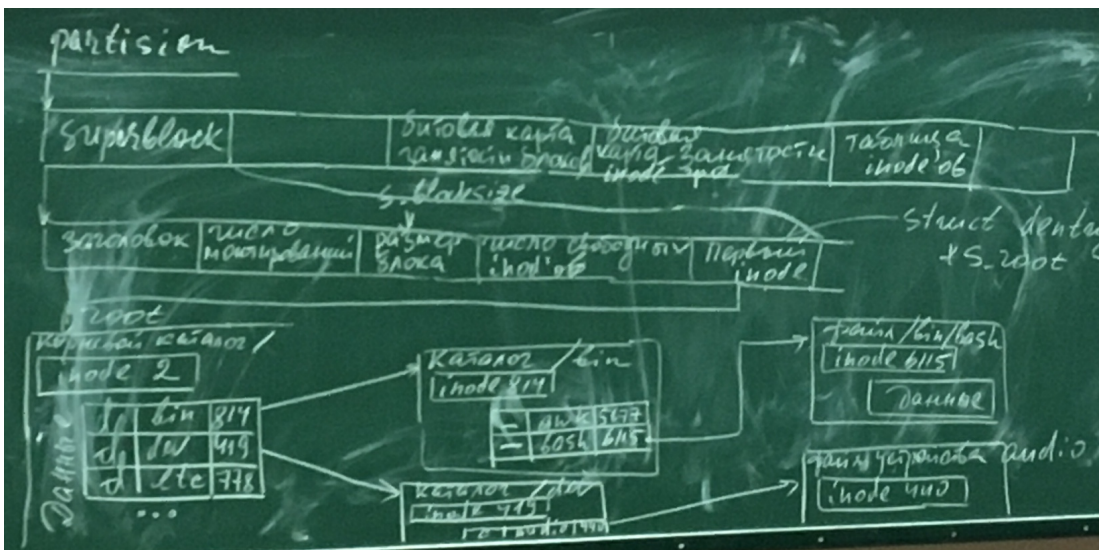 partision
superblock
битовая карта
занятости блоков
битовая
карта занятости
inode'ов
таблица
inode'ов
s_blocksize
struct dentry
*s_root
заголовок
число
монтирований
размер
блока
число свободных
inod'ов
первый
inode
root
корневой каталог /
inode 2
Данные
d bin 814
d dev 419
d etc 778
...
каталог /bin
inode 814
- awk 5677
- bash 6115
каталог /dev
inode 419
audio 440
файл /bin/bash
inode 6115
Данные
файл устройства audio
inode 440